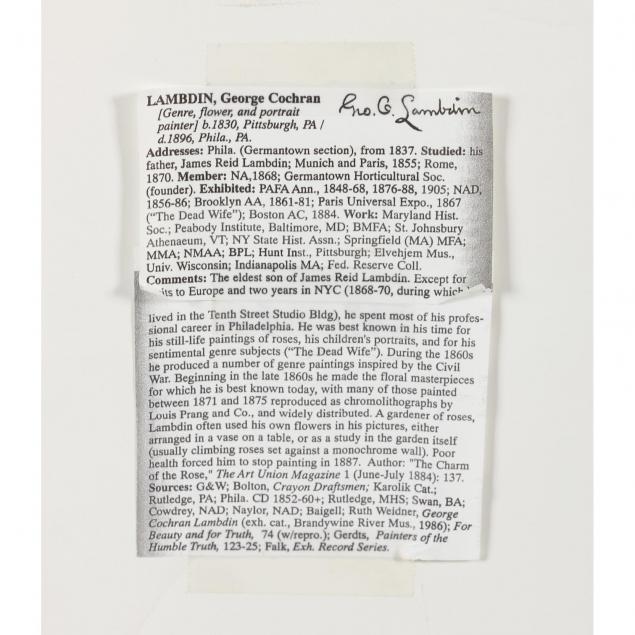 LAMBDIN, George Cochran
Geo. C. Lambdin
[Genre, flower, and portrait
painter] b.1830, Pittsburgh, PA /
d.1896, Phila., PA.
Addresses: Phila. (Germantown section), from 1837. Studied: his
father, James Reid Lambdin; Munich and Paris, 1855; Rome,
1870. Member: NA,1868; Germantown Horticultural Soc.
(founder). Exhibited: PAFA Ann., 1848-68, 1876-88, 1905; NAD,
1856-86; Brooklyn AA, 1861-81; Paris Universal Expo., 1867
("The Dead Wife"); Boston AC, 1884. Work: Maryland Hist.
Soc.; Peabody Institute, Baltimore, MD; BMFA; St. Johnsbury
Athenaeum, VT; NY State Hist. Assn.; Springfield (MA) MFA;
MMA; NMAA; BPL; Hunt Inst., Pittsburgh; Elvehjem Mus.,
Univ. Wisconsin; Indianapolis MA; Fed. Reserve Coll.
Comments: The eldest son of James Reid Lambdin. Except for
to Europe and two years in NYC (1868-70, during which
lived in the Tenth Street Studio Bldg), he spent most of his profes-
sional career in Philadelphia. He was best known in his time for
his still-life paintings of roses, his children's portraits, and for his
sentimental genre subjects ("The Dead Wife"). During the 1860s
he produced a number of genre paintings inspired by the Civil
War. Beginning in the late 1860s he made the floral masterpieces
for which he is best known today, with many of those painted
between 1871 and 1875 reproduced as chromolithographs by
Louis Prang and Co., and widely distributed. A gardener of roses,
Lambdin often used his own flowers in his pictures, either
arranged in a vase on a table, or as a study in the garden itself
(usually climbing roses set against a monochrome wall). Poor
health forced him to stop painting in 1887. Author: "The Charm
of the Rose," The Art Union Magazine 1 (June-July 1884): 137.
Sources: G&W; Bolton, Crayon Draftsmen; Karolik Cat.;
Rutledge, PA; Phila. CD 1852-60+; Rutledge, MHS; Swan, BA;
Cowdrey, NAD; Naylor, NAD; Baigell; Ruth Weidner, George
Cochran Lambdin (exh. cat., Brandywine River Mus., 1986); For
Beauty and for Truth, 74 (w/repro.); Gerdts, Painters of the
Humble Truth, 123-25; Falk, Exh. Record Series.